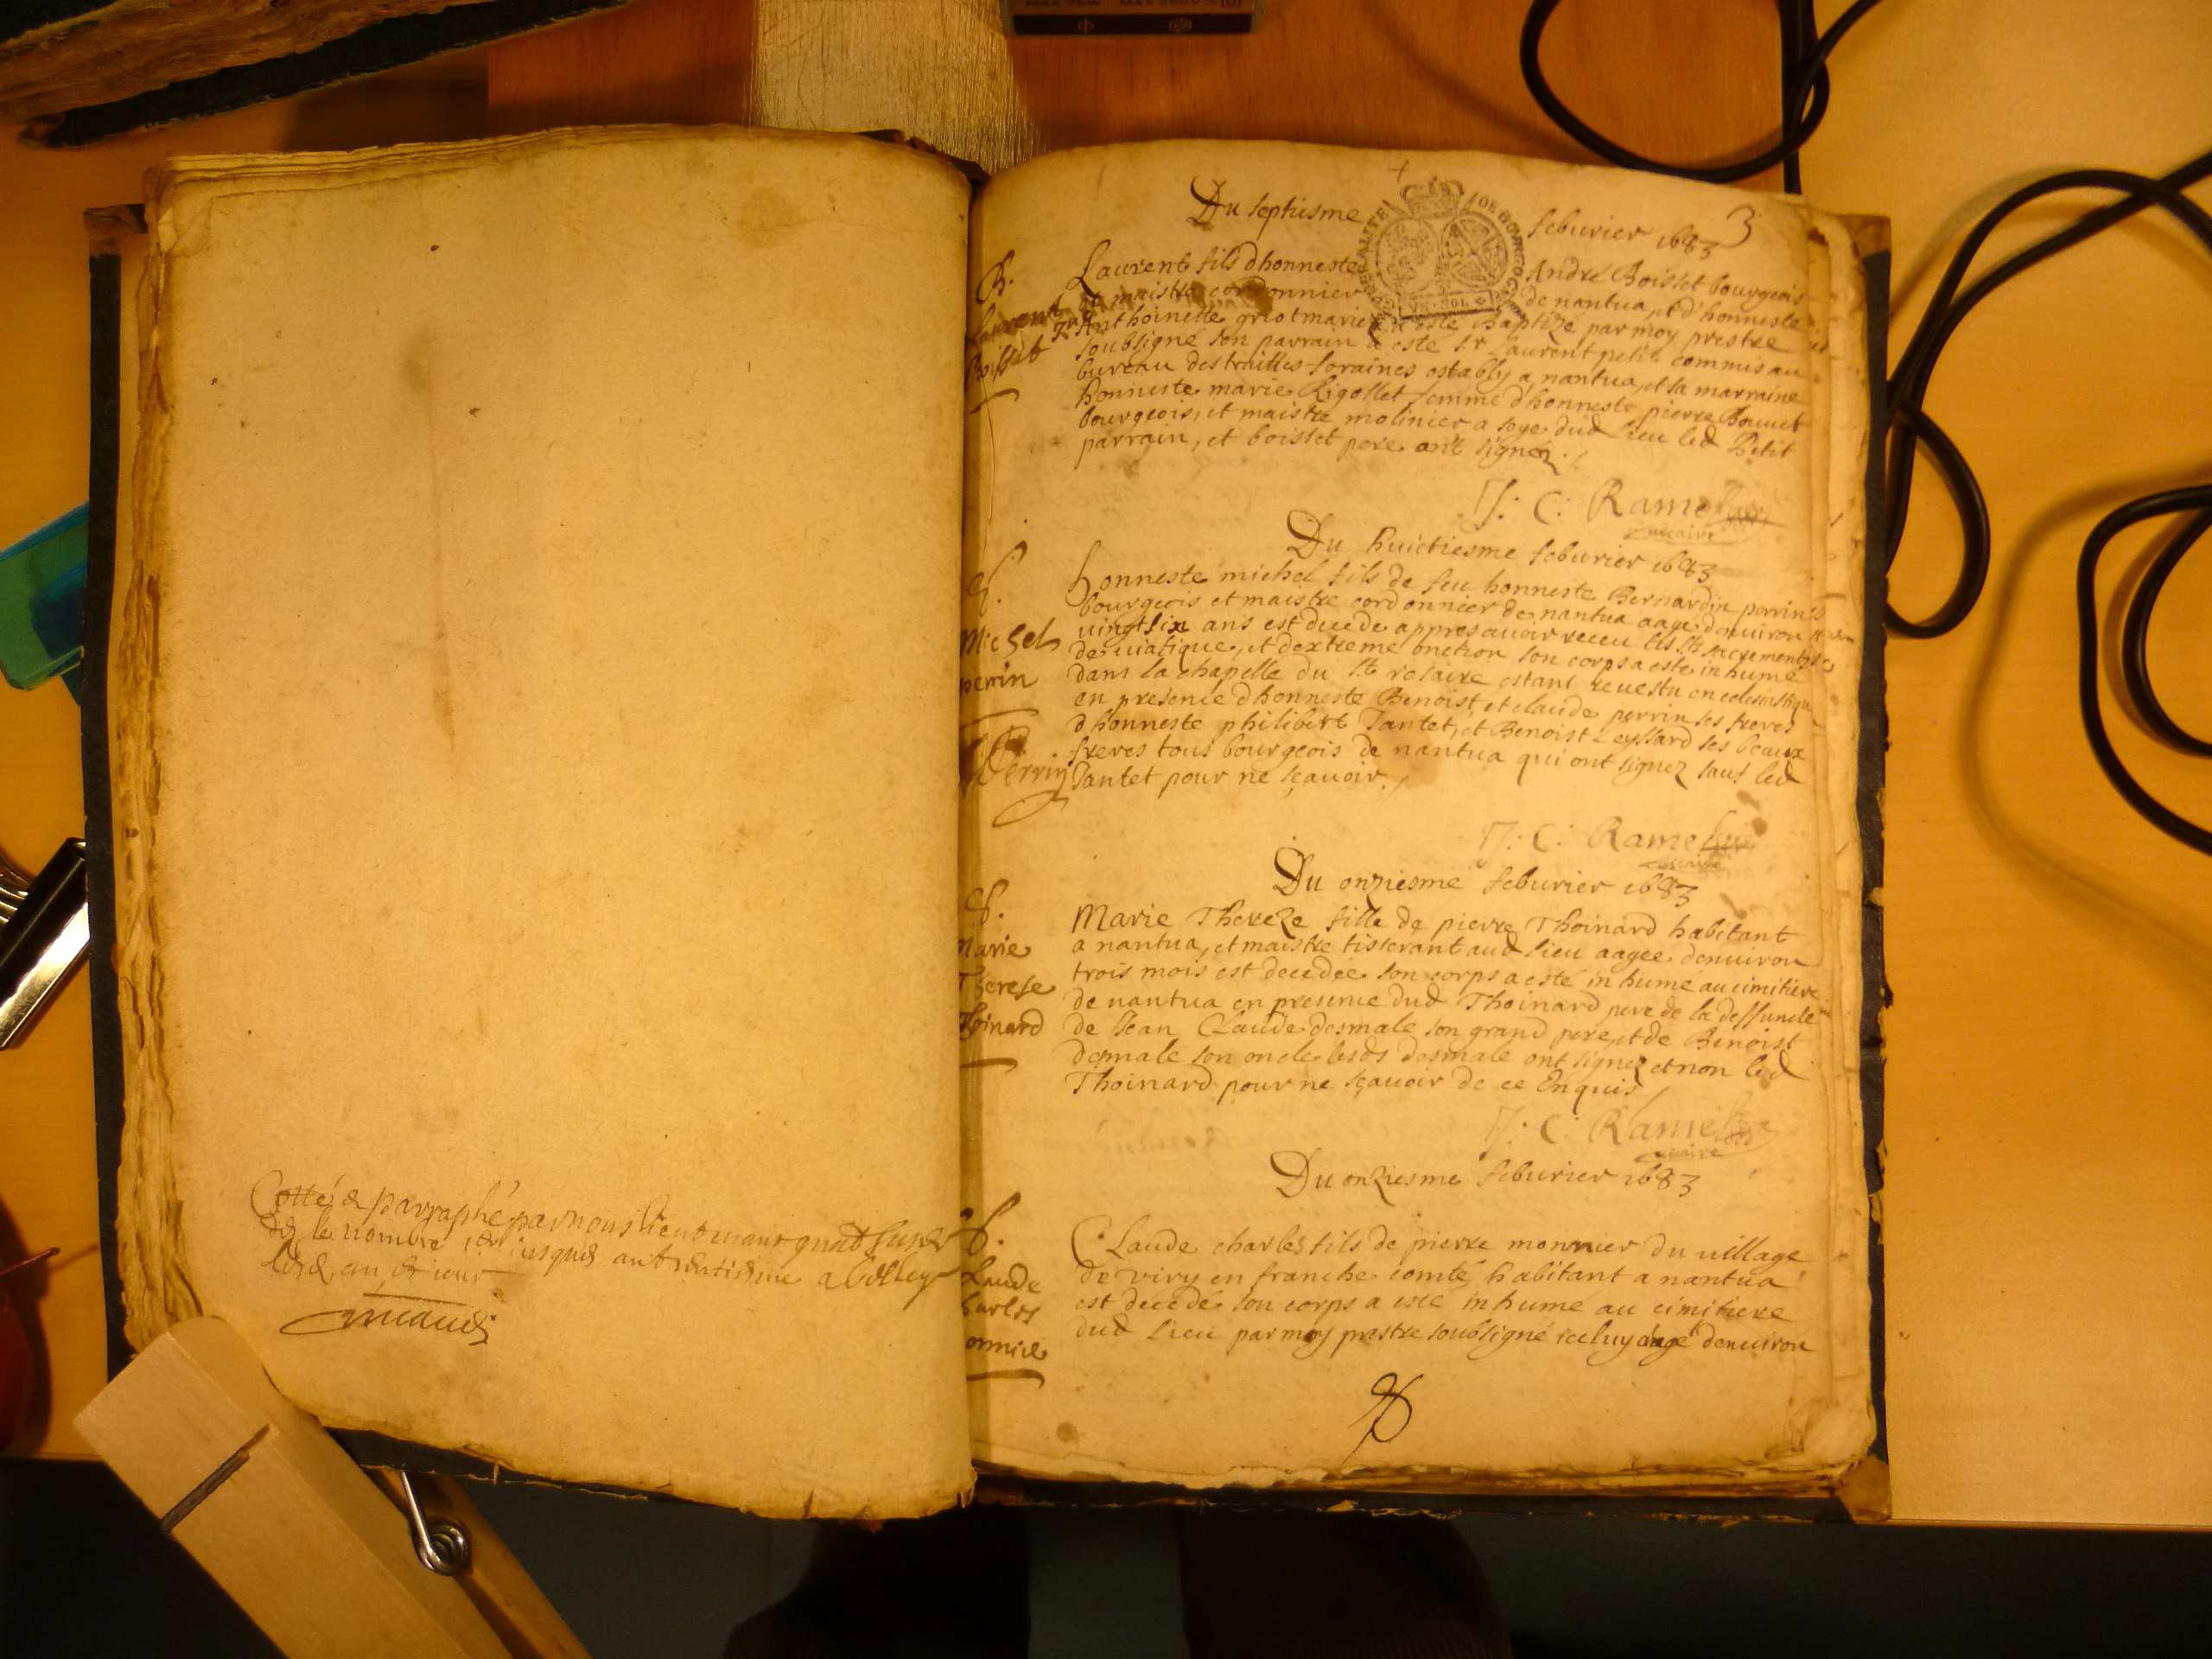 Cotté & parraphé par nous lieutenant
le nombre jusques au trentiesme a belley
an & jour
3
Du septiesme feburier 1683
GENERALITE DE BOURGOGNE
B.
Laurent
Boisset
Laurent fils dhonneste André Boisset bourgeois
et maistre cordonnier de nantua, et d'honneste
Anthoinette griotmarier a esté Baptizé par moy prestre
soubsigné son parrain a esté sr Laurent petit commis au
bureau des traittes foraines estably a nantua, et sa marraine
honneste marie Rigollet femme d'honneste pierre Bouuet
bourgeois, et maistre molinier a soye dud lieu led Petit
parrain, et boisset pere ont signéz.
J: C: Ramel
vicaire
Du huictiesme feburier 1683
S.
Michel
perrin
honneste michel fils de feu honneste Bernardin perrin
bourgeois et maistre cordonnier de nantua aagé denuiron
uingtsix ans est decedé appres auoir receu les sts sacrements
de uiatique, et dextreme onction son corps a esté inhumé
dans la chapelle du st rosaire estant reuestu en
en presence dhonneste Benoist, et claude perrin ses freres
dhonneste philibert Jantet, et Benoist Leyssard ses beaux
freres tous bourgeois de nantua qui ont signez sauf led
Jantet pour ne sçauoir.
Perrin
J: C: Ramel
vicaire
Du onziesme feburier 1683
S.
Marie
Therese
Thoinard
Marie Thereze fille de pierre Thoinard habitant
a nantua, et maistre tisserant aud lieu aagee denuiron
trois mois est decedée son corps a esté inhumé au cimitiere
de nantua en presence dud Thoinard pere de la deffuncte
de Jean Claude desmale son grand pere, et de Benoist
desmale son oncle lesds desmale ont signez et non led
Thoinard pour ne sçauoir de ce Enquis
J: C: Ramel
vicaire
Du onziesme feburier 1683
S.
Claude
charles
monnier
Claude charles fils de pierre monnier du uillage
de viry en franche comté habitant a nantua
est decedé son corps a esté inhumé au cimitiere
dud lieu par moy prestre soubsigné iceluy aagé denuiron